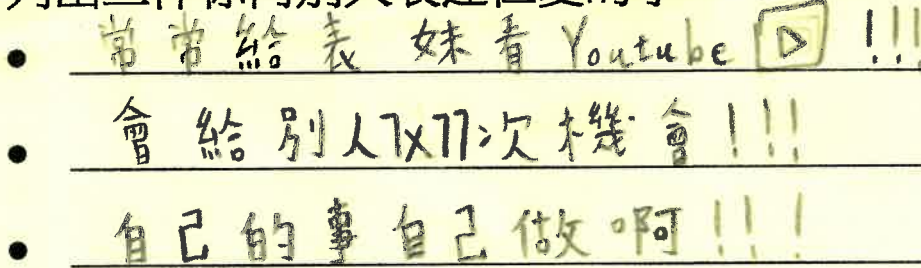 常常給表妹看Youtube!!!
會給別人7x77次機會!!!
自己的事自己做啊!!!